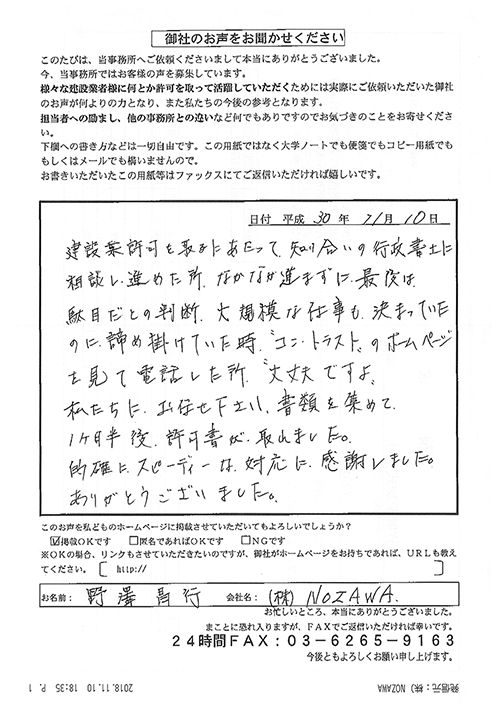 御社のお声をお聞かせください
このたびは、当事務所へご依頼くださいまして本当にありがとうございました。
今、当事務所ではお客様の声を募集しています。
様々な建設業者様に何とか許可を取って活躍していただくためには実際にご依頼いただいた御社
のお声が何よりの力となり、また私たちの今後の参考となります。
担当者への励まし、他の事務所との違いなど何でもありですのでお気づきのことをお寄せくださ
い。
下欄への書き方などは一切自由です。この用紙ではなく大学ノートでも便箋でもコピー用紙でも
もしくはメールでも構いませんので。
お書きいただいたこの用紙等はファックスにてご返信いただければ嬉しいです。
日付 平成 30 年 11 月 10 日
建設業許可を取るにあたって、知り合いの行政書士に
相談し、進めた所、なかなか進まずに、最後は
駄目だとの判断、大規模な仕事も、決まっていた
のに、諦め掛けていた時、“コン・トラスト”のホームページ
を見て電話した所、“大丈夫ですよ、
私たちに、お任せ下さい、書類を集めて、
1ヶ月半後、許可書が、取れました。
的確に、スピーディーな、対応に、感謝しました。
ありがとうございました。
このお声を私どものホームページに掲載させていただいてもよろしいでしょうか？
☑掲載OKです □匿名であればOKです □NGです
※OKの場合、リンクもさせていただきたいのですが、御社がホームページをお持ちであれば、URLも教え
てください。〔 http:// 〕
お名前： 野澤 昌行 会社名： (株) NOZAWA.
お忙しいところ、本当にありがとうございました。
まことに恐れ入りますが、FAXでご返信いただければ幸いです。
24時間FAX：03-6265-9163
今後ともよろしくお願い申し上げます。
発信元：(株) NOZAWA 2018.11.10 18:35 P. 1